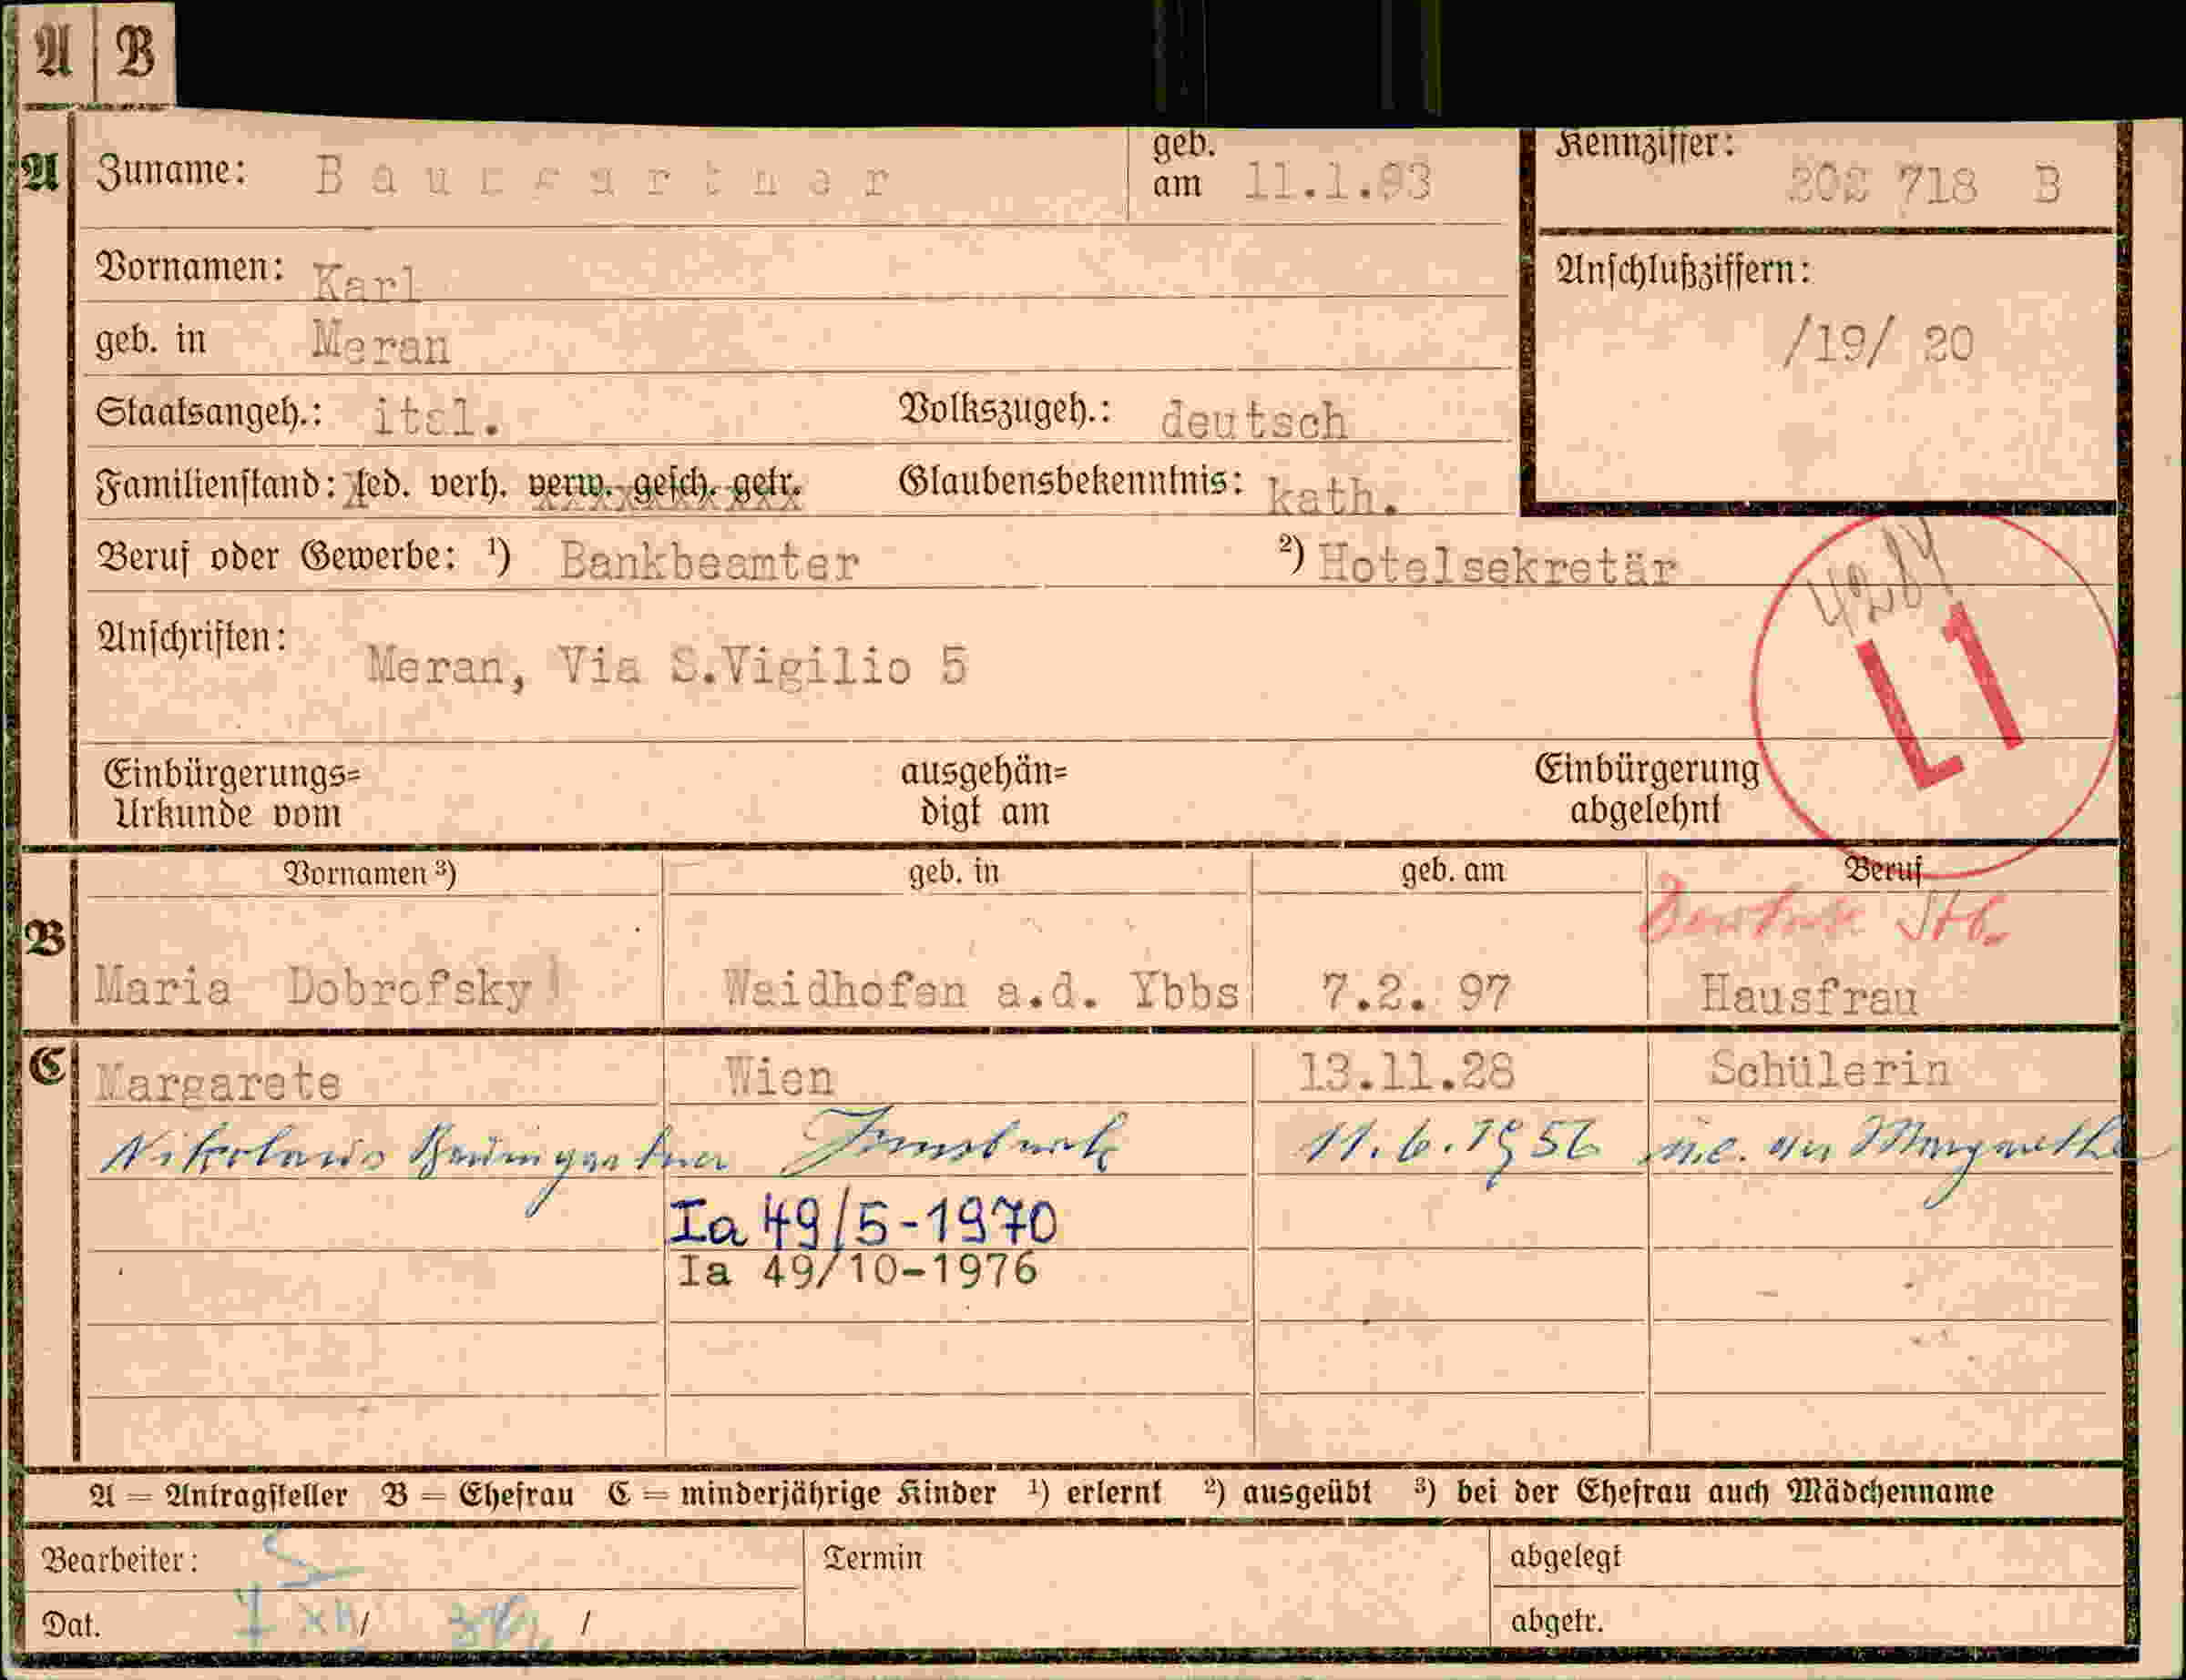 A B
A Zuname: Baumgartner geb. am 11.1.93 Kennziffer: 302 718 B
Vornamen: Karl Anschlußziffern:
geb. in Meran /19/ 20
Staatsangeh.: ital. Volkszugeh.: deutsch
Familienstand: led. verh. verw. gesch. getr. Glaubensbekenntnis: kath.
Beruf oder Gewerbe: ¹) Bankbeamter ²) Hotelsekretär
L1
Anschriften: Meran, Via S.Vigilio 5
Einbürgerungs= Urkunde vom ausgehän= digt am Einbürgerung abgelehnt
Vornamen ³) geb. in geb. am Beruf
B Maria Dobrofsky Waidhofen a.d. Ybbs 7.2. 97 Hausfrau
C Margarete Wien 13.11.28 Schülerin
Nikolaus Baumgartner Innsbruck 11.6.1956 Margarethe
Ia 49/5-1970
Ia 49/10-1976
A = Antragsteller B = Ehefrau C = minderjährige Kinder ¹) erlernt ²) ausgeübt ³) bei der Ehefrau auch Mädchenname
Bearbeiter: Termin abgelegt
Dat. / / abgetr.